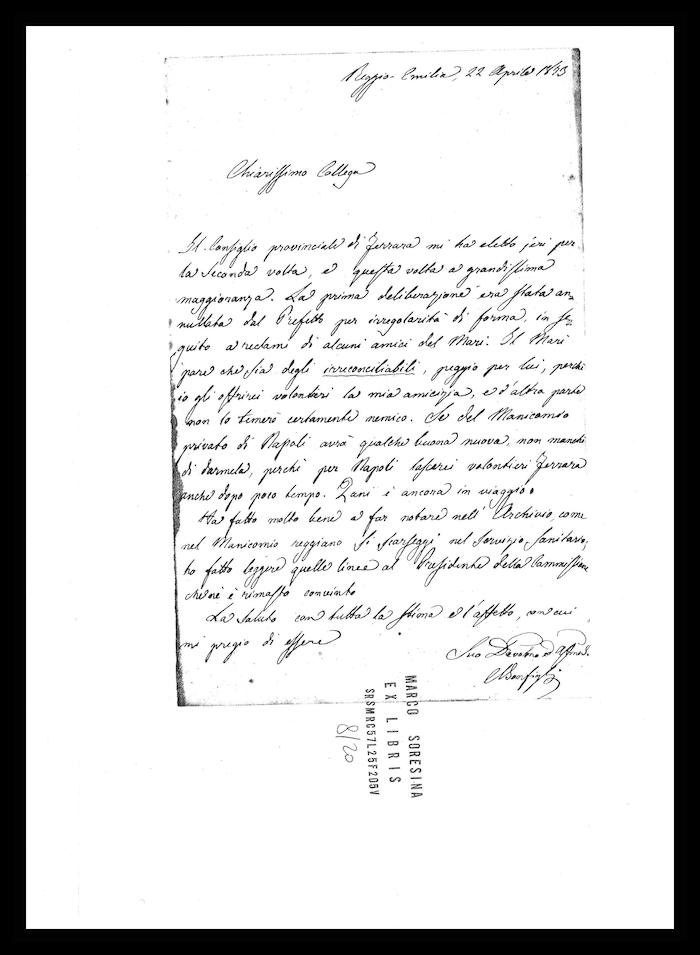 Reggio-Emilia, 22 Aprile 1873
Chiarissimo Collega
Il Consiglio provinciale di Ferrara mi ha eletto jeri per
la seconda volta, e questa volta a grandissima
maggioranza. La prima deliberazione era stata an-
nullata dal Prefetto per irregolarità di forma, in se-
guito a reclami di alcuni amici del Mari. Il Mari
pare che sia degli irreconciliabili, peggio per lui, perchè
io gli offrirei volontieri la mia amicizia, e d'altra parte
non lo temerò certamente nemico. Se del Manicomio
privato di Napoli avrà qualche buona nuova, non manchi
di darmela, perchè per Napoli lascerei volontieri Ferrara
anche dopo poco tempo. Zani è ancora in viaggio.
Ha fatto molto bene a far notare nell'Archivio, come
nel Manicomio reggiano si scarseggi nel servizio sanitario,
ho fatto leggere quelle linee al Presidente della Commissione
che ne è rimasto convinto
La saluto con tutta la stima e l'affetto, con cui
mi pregio di essere
Suo Devotmo ed Affmo
CBonfigli
MARCO SORESINA
EX LIBRIS
SRSMRC57L25F205V
8/20